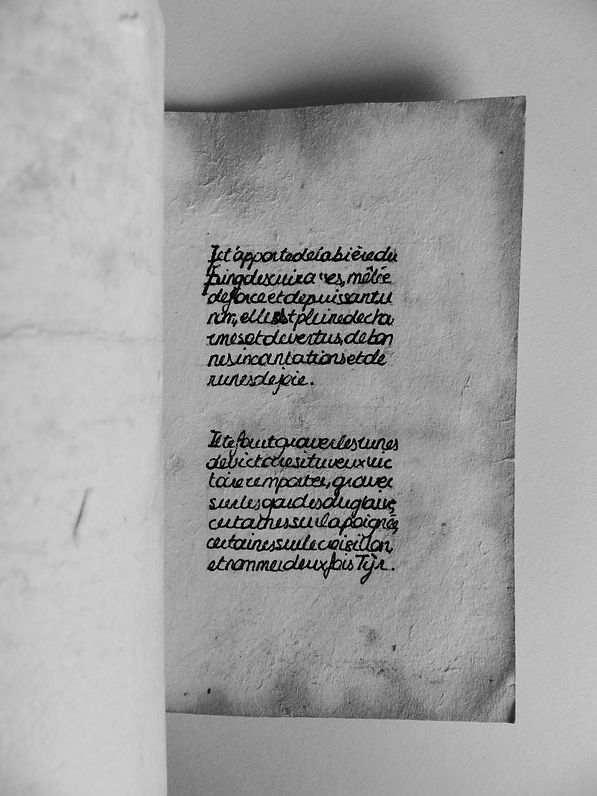 Je t'apporte de la bière du
þing des cuirasses, mêlée
de force et de puissant re
nom, elle est pleine de cha
rmes et de vertus, de bon
nes incantations et de
runes de joie.
Il te faut graver les runes
de victoire si tu veux vic
toire remporter, graver
sur les gardes du glaive,
certaines sur la poignée,
certaines sur le croisillon,
et nommer deux fois Týr.